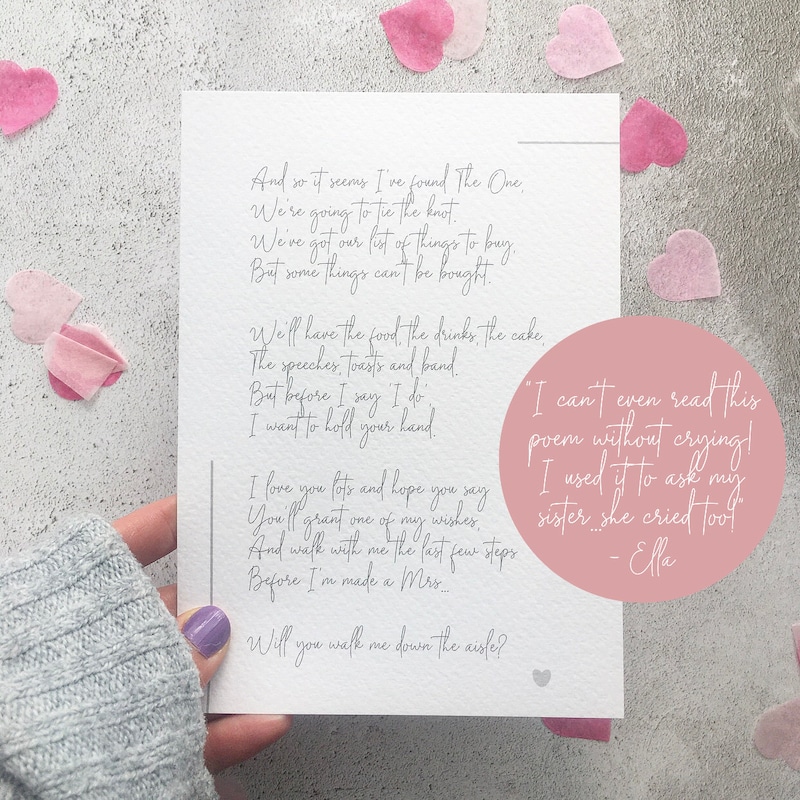 And so it seems I've found The One,
We're going to tie the knot.
We've got our list of things to buy,
But some things can't be bought.
We'll have the food, the drinks, the cake,
The speeches, toasts and band.
But before I say 'I do'
I want to hold your hand.
I love you lots and hope you say
You'll grant one of my wishes,
And walk with me the last few steps
Before I'm made a Mrs...
Will you walk me down the aisle?
"I can't even read this
poem without crying!
I used it to ask my
sister...she cried too!"
- Ella